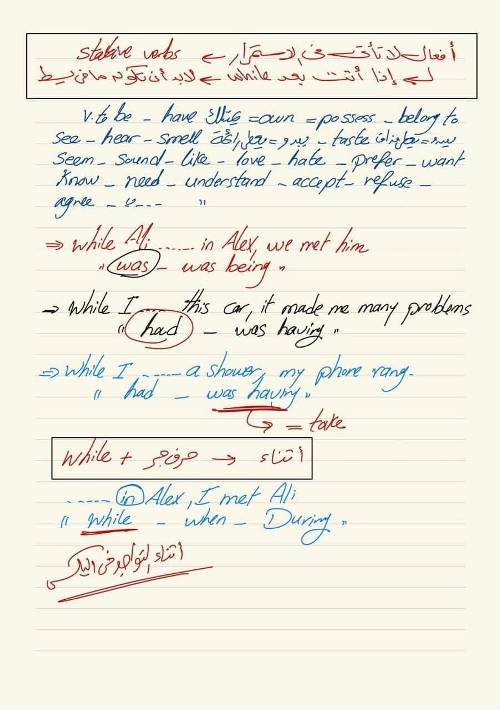 stative verbs ← أفعال لا تأتى فى الاستمرار
← إذا أتت بعد while ← لابد أن تكون ماضى بسيط
v. to be - have يمتلك = own = possess - belong to
see - hear - smell - taste
seem - sound - like - love - hate - prefer - want
know - need - understand - accept - refuse -
agree -
⇒ while Ali ...... in Alex, we met him
" was - was being "
→ while I .... this car, it made me many problems
" had - was having "
⇒ while I ...... a shower, my phone rang.
" had - was having "
↳ = take
while + حرف جر → أثناء
...... in Alex, I met Ali
" while - when - During "
أثناء التواجد فى اليكس